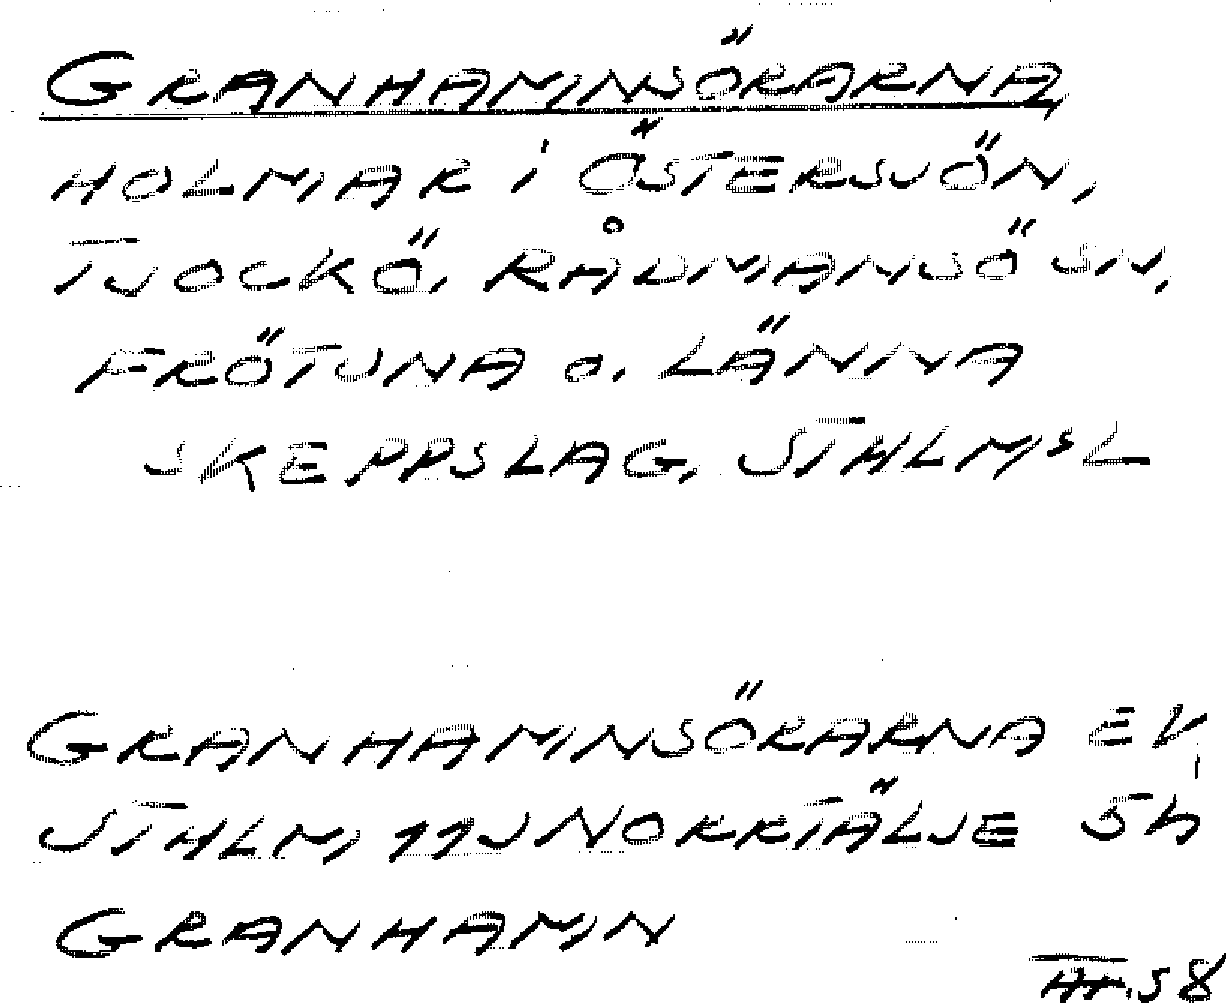 GRANHAMNSÖRARNA
HOLMAR i ÖSTERSJÖN,
TJOCKÖ, RÅDMANSÖ SN,
FRÖTUNA o. LÄNNA
SKEPPSLAG, STHLMSL
GRANHAMNSÖRARNA EK,
STHLM, 11J NORRTÄLJE 5h
GRANHAMN